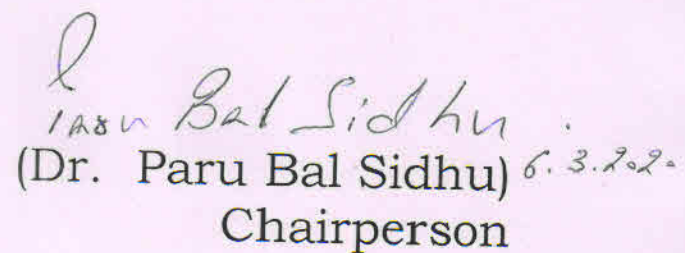 Paru Bal Sidhu .
(Dr. Paru Bal Sidhu) 6.3.2020
Chairperson